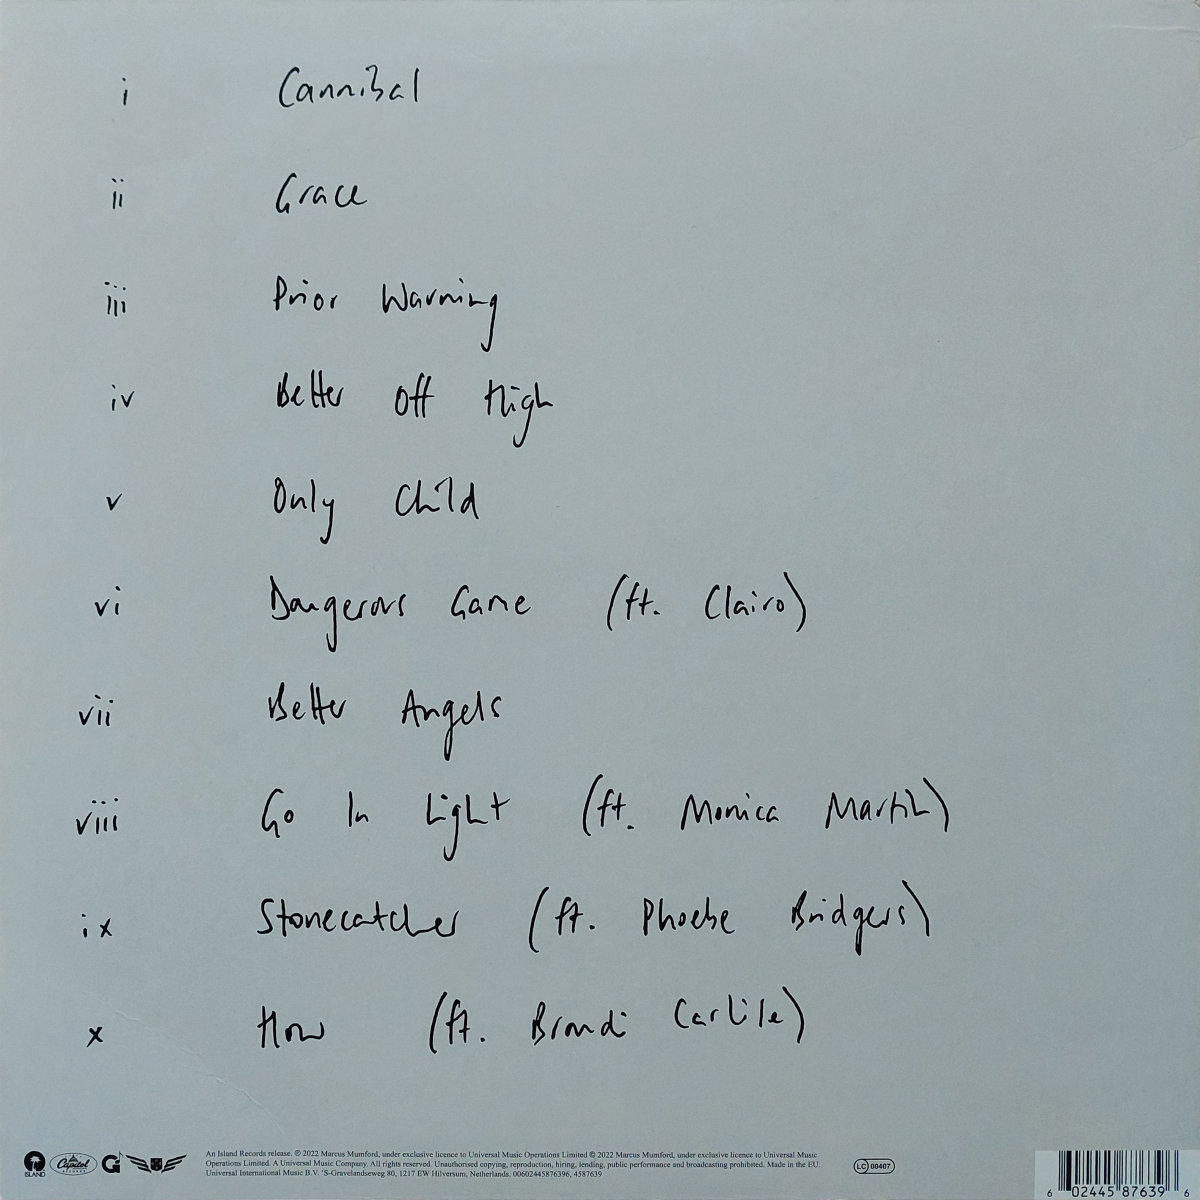 i Cannibal
ii Grace
iii Prior Warning
iv Better Off High
v Only Child
vi Dangerous Game (ft. Clairo)
vii Better Angels
viii Go In Light (ft. Monica Martin)
ix Stonecatcher (ft. Phoebe Bridgers)
x How (ft. Brandi Carlile)
ISLAND
Capitol
RECORDS
An Island Records release. ℗ 2022 Marcus Mumford, under exclusive licence to Universal Music Operations Limited © 2022 Marcus Mumford, under exclusive licence to Universal Music
Operations Limited. A Universal Music Company. All rights reserved. Unauthorised copying, reproduction, hiring, lending, public performance and broadcasting prohibited. Made in the EU.
Universal International Music B.V. 'S-Gravelandseweg 80, 1217 EW Hilversum, Netherlands. 00602445876396, 4587639
LC 00407
6 02445 87639 6